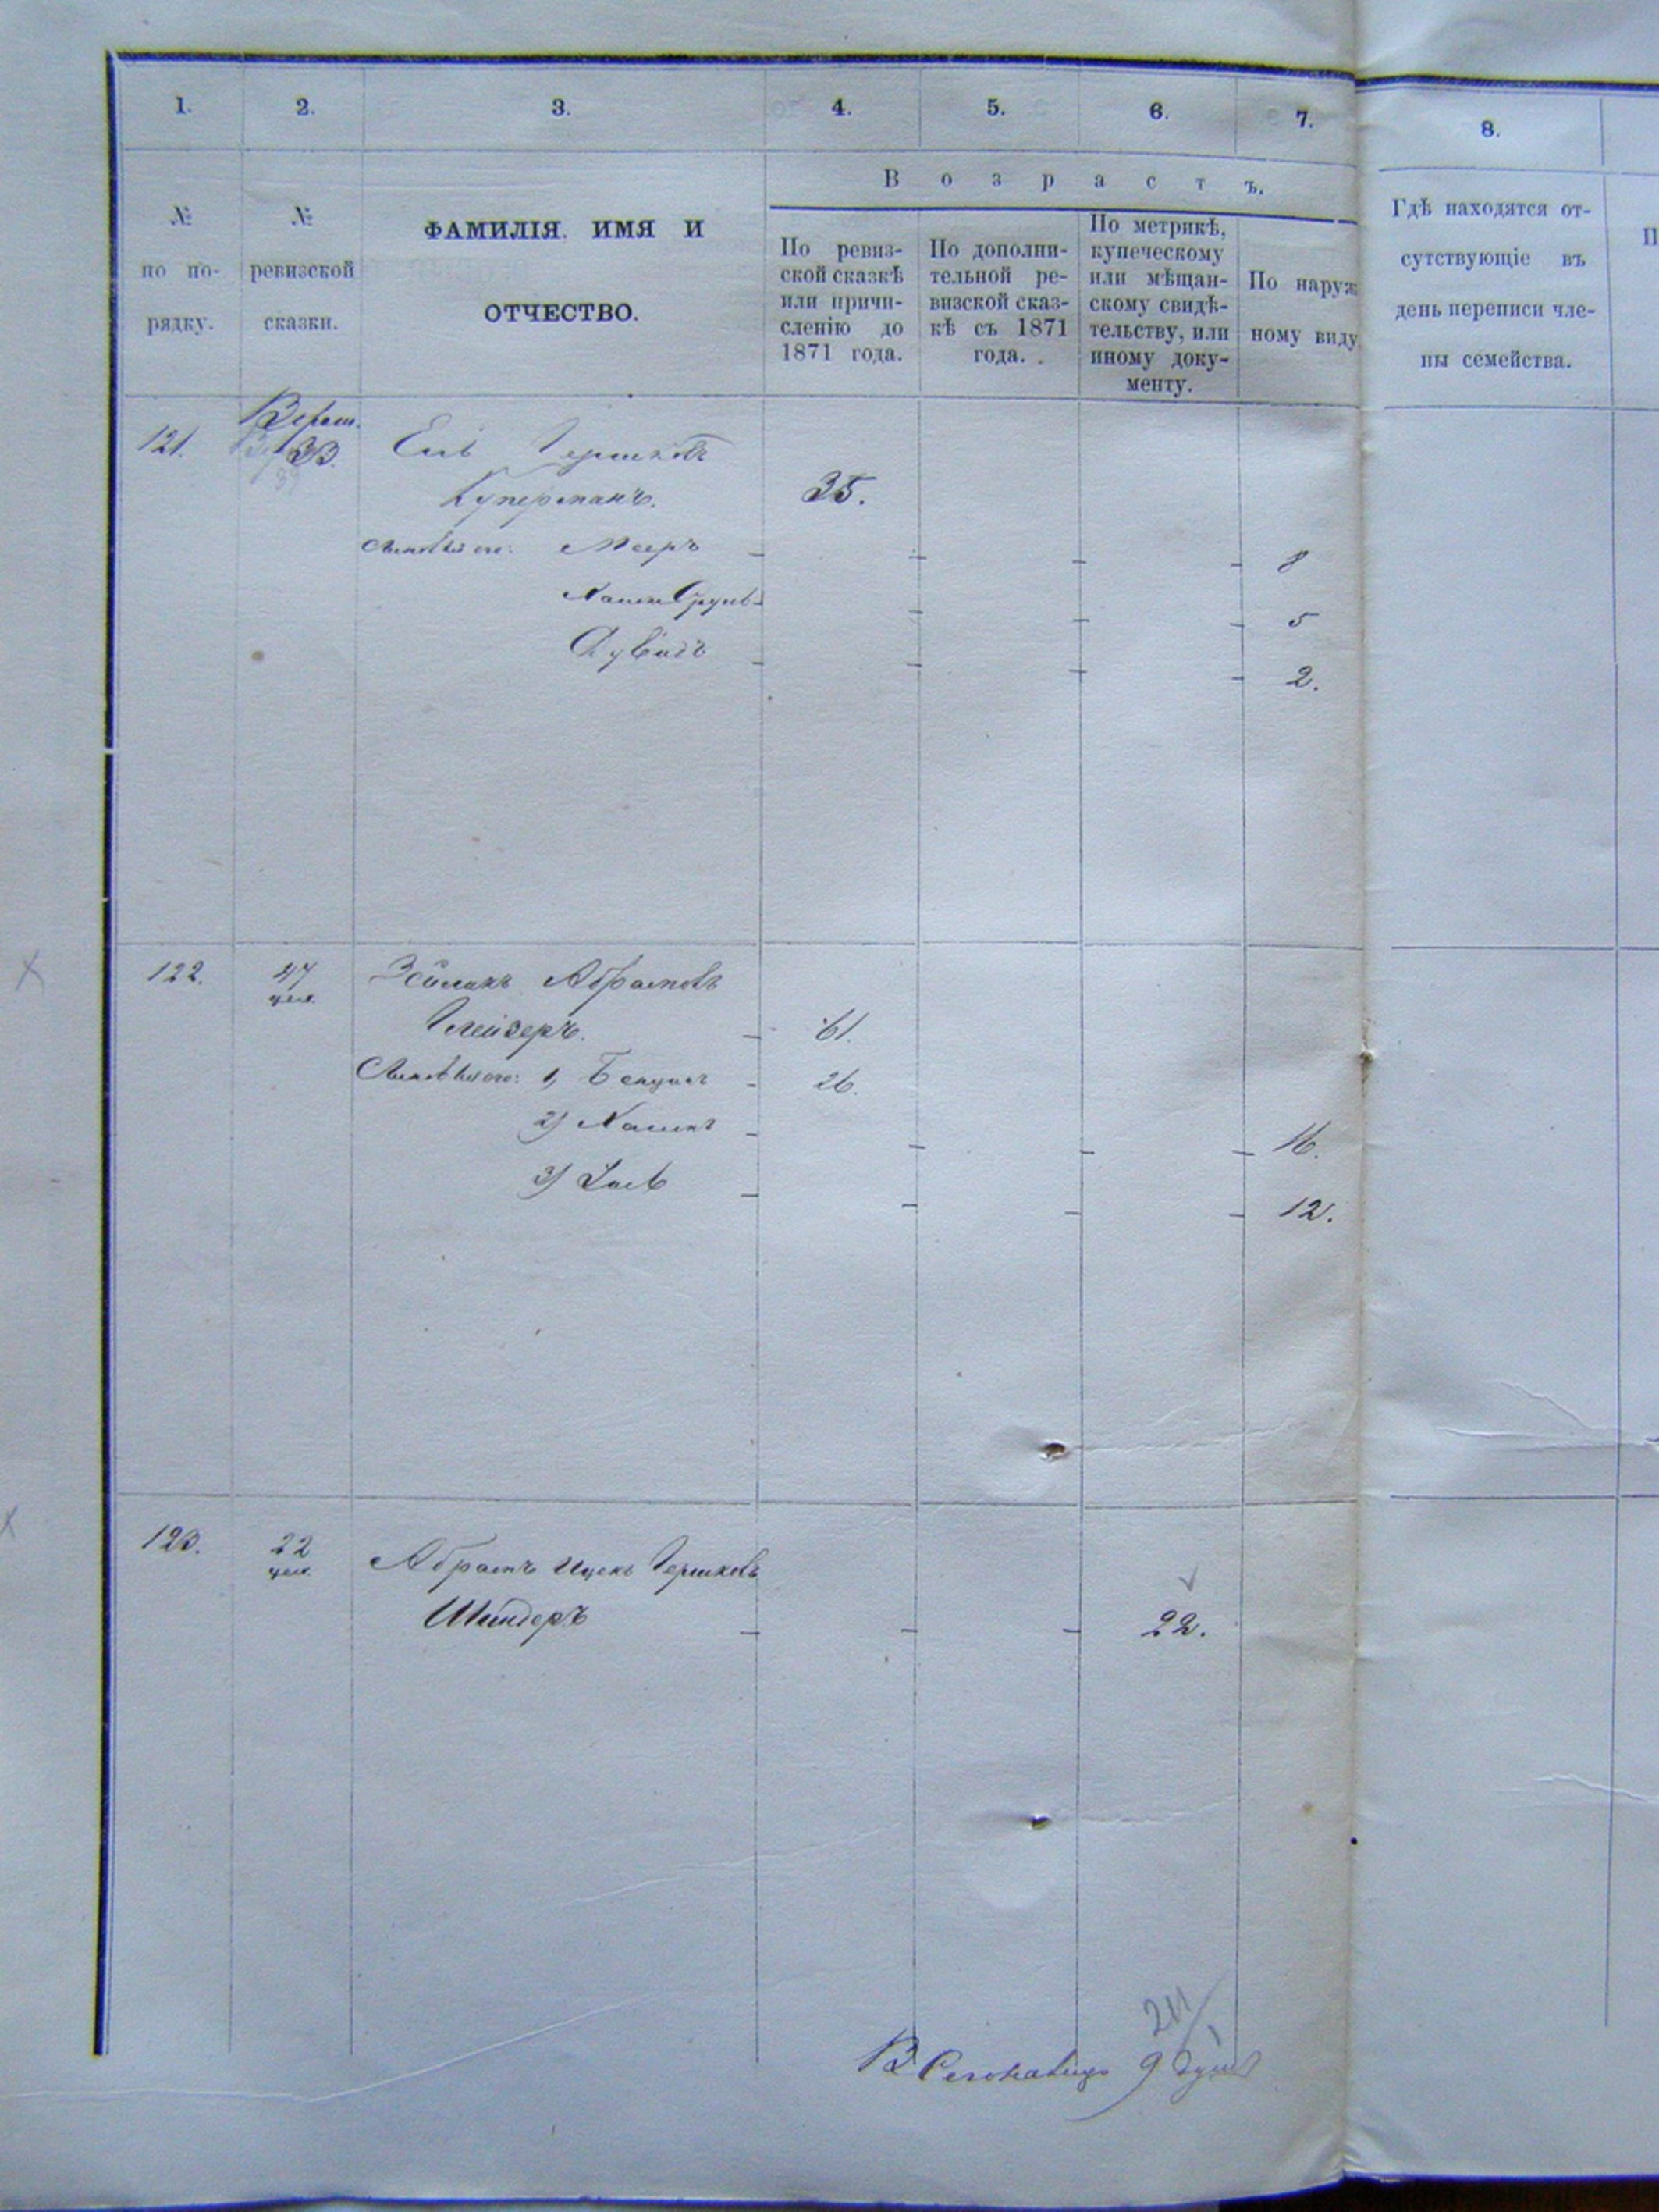 1.
2.
3.
4.
5.
6.
7.
8.
№ по по-
рядку.
№
ревизской
сказки.
ФАМИЛІЯ. ИМЯ И
ОТЧЕСТВО.
В о з р а с т ъ.
По ревиз-
ской сказкѣ
или причи-
сленію до
1871 года.
По дополни-
тельной ре-
визской сказ-
кѣ съ 1871
года.
По метрикѣ,
купеческому
или мѣщан-
скому свидѣ-
тельству, или
иному доку-
менту.
По наруж
ному виду
Гдѣ находятся от-
сутствующіе въ
день переписи чле-
ны семейства.
121.
33.
Гершковъ
Куперманъ.
35.
Сыновья его: Мееръ
8
5
Дувидъ
2.
122.
47
Абрамовъ
Глейзеръ.
61.
Сыновья его: 1,
26.
2) Хаимъ
16.
3)
12.
123.
22
Абрамъ Ицекъ Гершковъ
Шнидеръ
22.
9 душъ